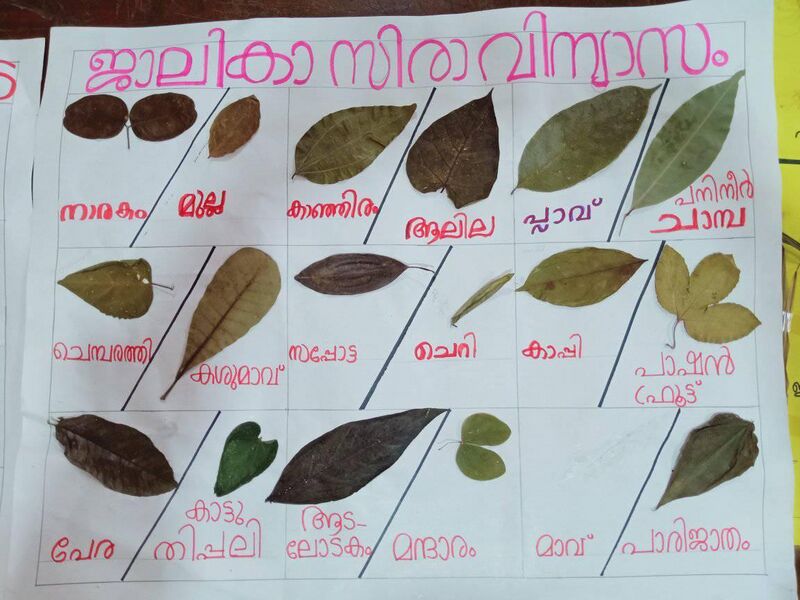 ജാലികാ സിരാ വിന്യാസം
നാരകം
മുല്ല
കാഞ്ഞിരം
ആലില
പ്ലാവ്
പനിനീർ
ചാമ്പ
ചെമ്പരത്തി
കശുമാവ്
സപ്പോട്ട
ചെറി
കാപ്പി
പാഷൻ
ഫ്രൂട്ട്
പേര
കാട്ടു
തിപ്പലി
ആട-
ലോടകം
മന്ദാരം
മാവ്
പാരിജാതം